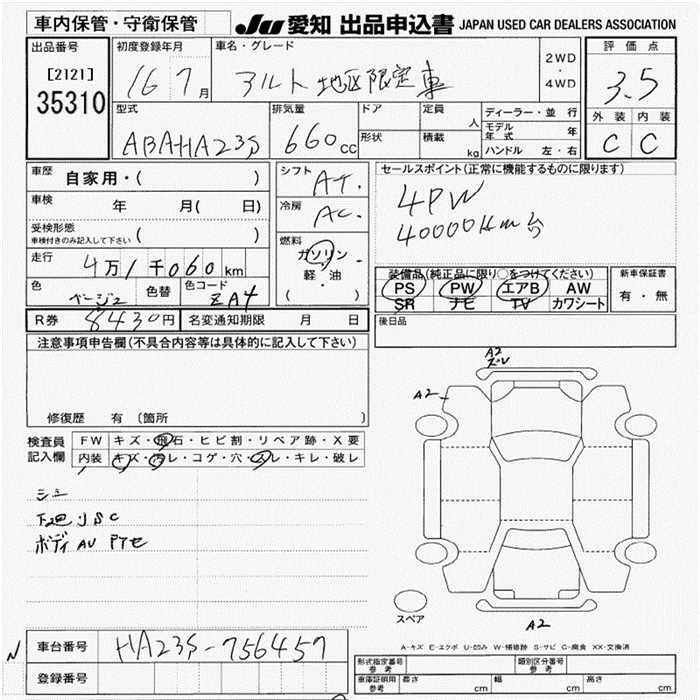 車内保管・守衛保管
JU 愛知 出品申込書 JAPAN USED CAR DEALERS ASSOCIATION
出品番号
[2121]
35310
初度登録年月
16 7月
車名・グレード
アルト 地区限定車
2WD
・
4WD
評価点
3.5
外装 内装
C C
型式
ABAHA23S
排気量
660cc
ドア
形状
定員
人
積載
kg
ディーラー・並行
モデル年式 年
ハンドル 左・右
車歴
自家用・( )
車検
年 月( 日)
受検形態
車検付きのみ記入して下さい ( )
走行
4万1千060km
色
ベージュ
色替
色コード
ZA4
R券 8430円
名変通知期限 月 日
シフト
AT.
冷房
AC.
燃料
ガソリン
・
軽・油
( )
セールスポイント(正常に機能するものに限ります)
4PW
40000km台
装備品(純正品に限り○をつけてください)
PS PW エアB AW
SR ナビ TV カワシート
新車保証書
有・無
後日品
注意事項申告欄(不具合内容等は具体的に記入して下さい)
修復歴 有 (箇所 )
検査員
記入欄
FW キズ・飛石・ヒビ割・リペア跡・X要
内装 キズ・汚レ・コゲ・穴・スレ・キレ・破レ
シミ
下廻 J S C
ボディ AU
A2
A2
スペア
A2
A-キズ E-エクボ U-凹み W-補修跡 S-サビ C-腐食 XX-交換済
N
車台番号 HA23S-756457
登録番号
形式指定番号
参考
類別区分番号
参考
車庫証明用
参考
長さ cm
幅 cm
高さ cm